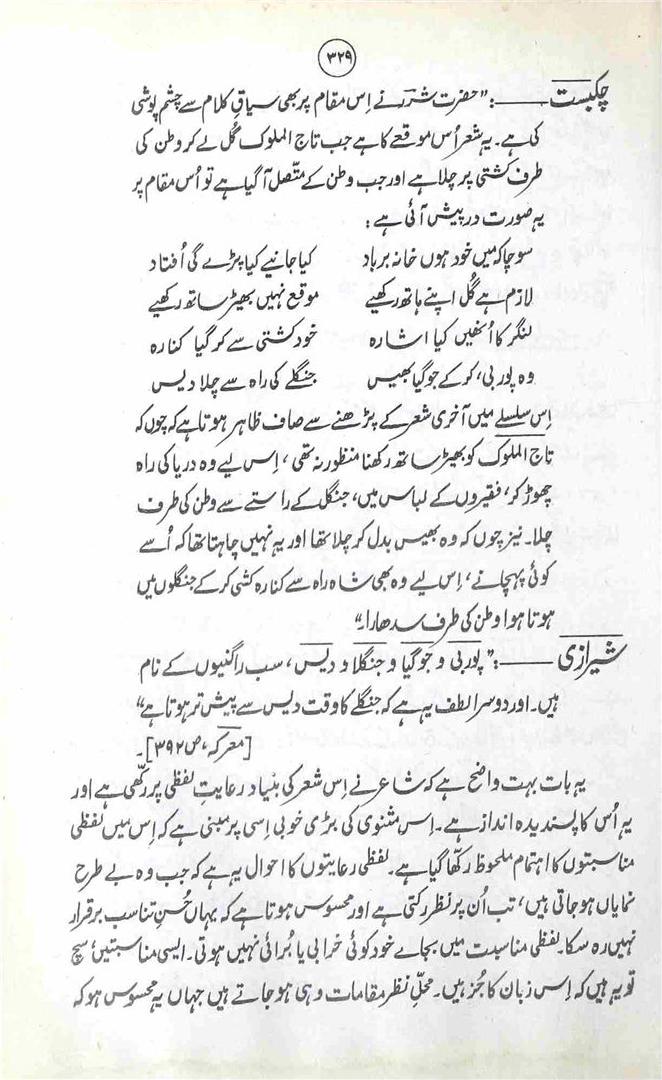 ۳۲۹
چکبست ———:“حضرت شررؔ نے اِس مقام پر بھی سیاقِ کلام سے چشم پوشی
کی ہے۔ یہ شعر اُس موقعے کا ہے جب تاج الملوک گُل لے کر وطن کی
طرف کشتی پر چلا ہے اور جب وطن کے متّصل آگیا ہے تو اُس مقام پر
یہ صورت درپیش آئی ہے :
سوچا کہ میں خود ہوں خانہ برباد کیا جانیے کیا پڑے گی اُفتاد
لازم ہے گُل اپنے ہاتھ رکھیے موقع نہیں بھیڑ ساتھ رکھیے
لنگر کا اُنھیں کیا اشارہ خود کشتی سے کر گیا کنارہ
وہ پوربی، کر کے جوگیا بھیس جنگلے کی راہ سے چلا دیس
اِس سلسلے میں آخری شعر کے پڑھنے سے صاف ظاہر ہوتا ہے کہ چوں کہ
تاج الملوک کو بھیڑ ساتھ رکھنا منظور نہ تھی، اِس لیے وہ دریا کی راہ
چھوڑ کر، فقیروں کے لباس میں، جنگل کے راستے سے وطن کی طرف
چلا۔ نیز چوں کہ وہ بھیس بدل کر چلا تھا اور یہ نہیں چاہتا تھا کہ اُسے
کوئی پہچانے، اِس لیے وہ بھی شاہ راہ سے کنارہ کشی کر کے جنگلوں میں
ہوتا ہوا وطن کی طرف سدھارا۔”
شیرازی ———:“پوربی و جوگیا و جنگلا و دیس، سب راگنیوں کے نام
ہیں۔ اور دوسرا لطف یہ ہے کہ جنگلے کا وقت دیس سے پیش تر ہوتا ہے”
[معرکہ، ص ۳۹۲]۔
یہ بات بہت واضح ہے کہ شاعر نے اِس شعر کی بنیاد رعایتِ لفظی پر رکھّی ہے اور
یہ اُس کا پسندیدہ انداز ہے۔ اِس مثنوی کی بڑی خوبی اِسی پر مبنی ہے کہ اِس میں لفظی
مناسبتوں کا اہتمام ملحوظ رکھّا گیا ہے۔ لفظی رعایتوں کا احوال یہ ہے کہ جب وہ بے طرح
نمایاں ہو جاتی ہیں، تب اُن پر نظر رکتی ہے اور محسوس ہوتا ہے کہ یہاں حُسنِ تناسب برقرار
نہیں رہ سکا۔ لفظی مناسبت میں بجاے خود کوئی خرابی یا بُرائی نہیں ہوتی۔ ایسی مناسبتیں، سچ
تو یہ ہیں کہ اِس زبان کا جُز ہیں۔ محلِّ نظر مقامات وہی ہو جاتے ہیں جہاں یہ محسوس ہو کہ